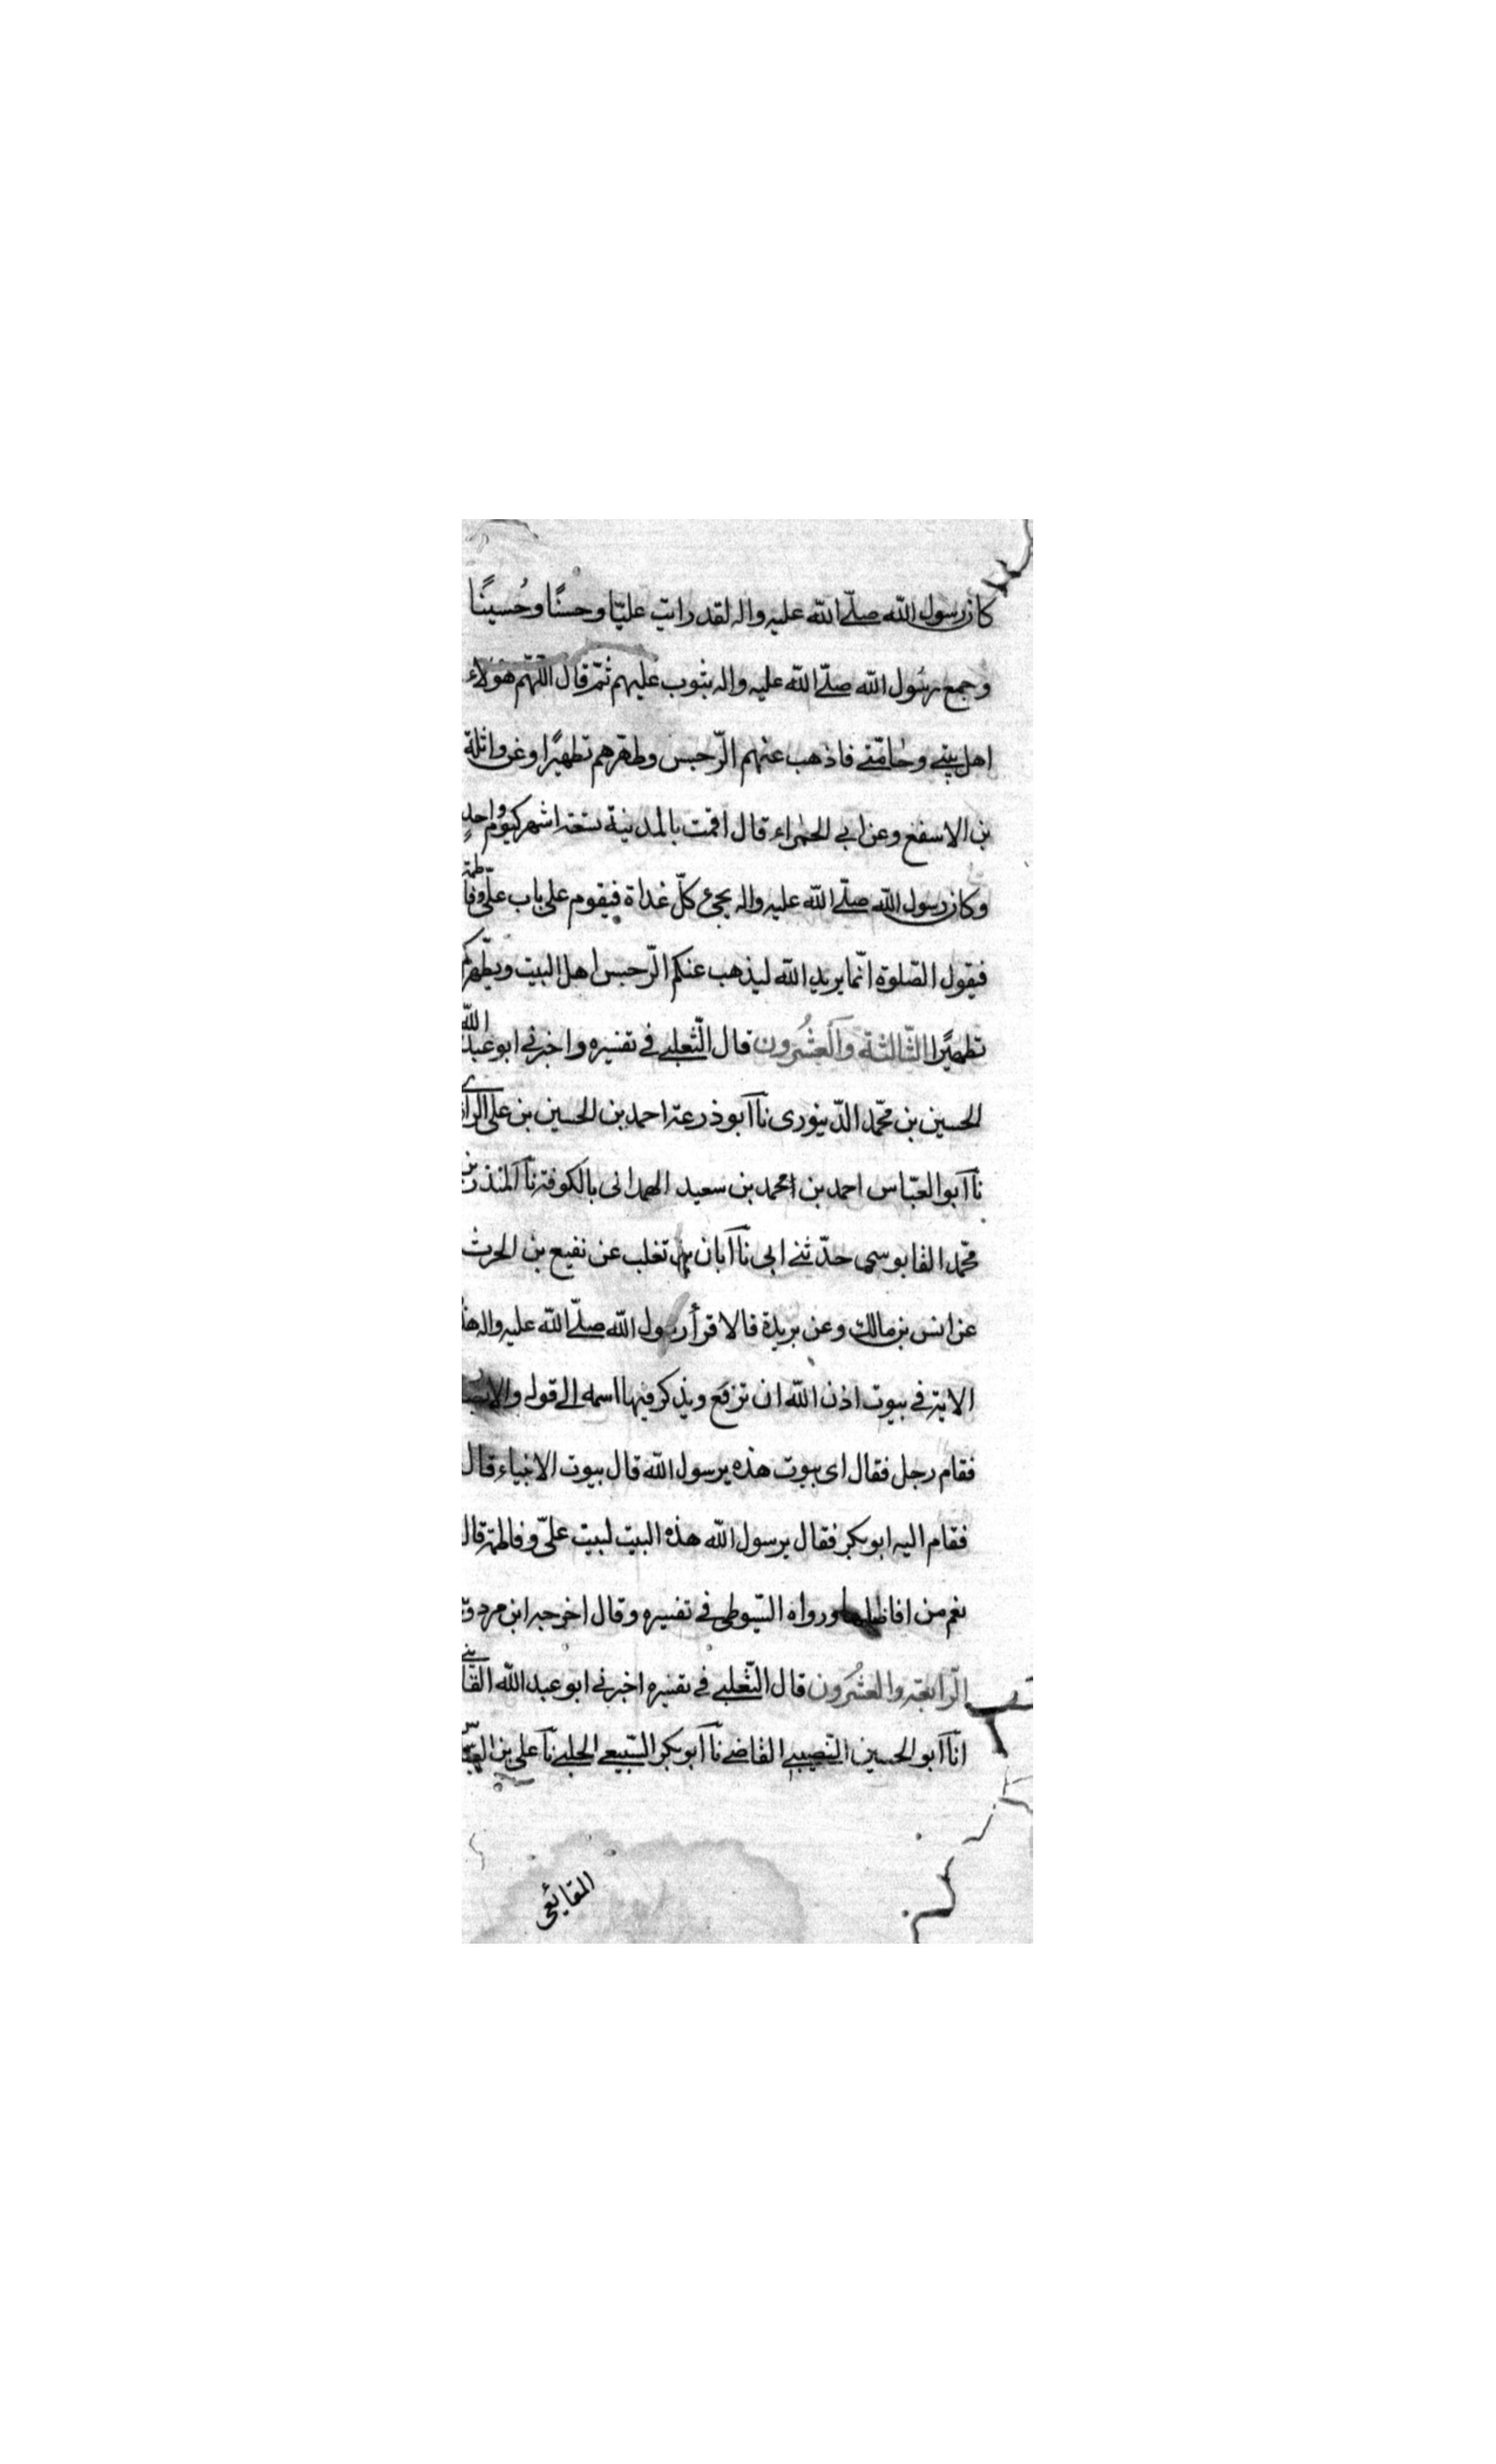 كان رسول الله صلّى الله عليه واله لقد رايت عليّا وحسنًا وحُسينًا
وجمع رسُول الله صلّى الله عليه واله بثوب عليهم ثمّ قال اللّهمّ هؤلاء
اهل بيتي وحامّتي فاذهب عنهم الرّجس وطهّرهم تطهيرًا وعن واثلة
بن الاسقع وعن ابي الحمراء قال اقمت بالمدينة تسعة اشهر كيوم واحد
وكان رسول الله صلّى الله عليه واله يجئ كلّ غداة فيقوم على باب علىّ وفاطمة
فيقول الصّلوة انّما يريد الله ليذهب عنكم الرّجس اهل البيت ويطّهركم
تطهيرًا الثّالثة والعشُرون قال الثّعلبي في تفسيره واخبرني ابو عبد الله
الحسين بن محمّد الدّينورى نآ ابو ذرعة احمد بن الحسين بن على الرازى
نآ ابو العبّاس احمد بن محمد بن سعيد الهمدانى بالكوفة نآ المنذر بن
محمّد القابوسى حدّثني ابى نآ ابان بن تغلب عن نفيع بن الحرث
عن انس بن مالك وعن بريدة قالا قرأ رسول الله صلّى الله عليه واله هذه
الاية في بيوت اذن الله ان ترفع ويذكر فيها اسمه الى قوله والابصار
فقام رجل فقال اى بيوت هذه يرسول الله قال بيوت الانبياء قال
فقام اليه ابو بكر فقال يرسول الله هذه البيت لبيت علىّ وفاطمة قال
نعم من افاضلها ورواه السّيوطى في تفسيره وقال اخرجه ابن مردوية
الرّابعة والعشُرون قال الثّعلبي في تفسيره اخبرني ابو عبد الله القايني
انآ ابو الحسين النّصيبي القاضي نآ ابو بكر السّبيعي الحلبي نآ على بن العبّاس
المقانعى